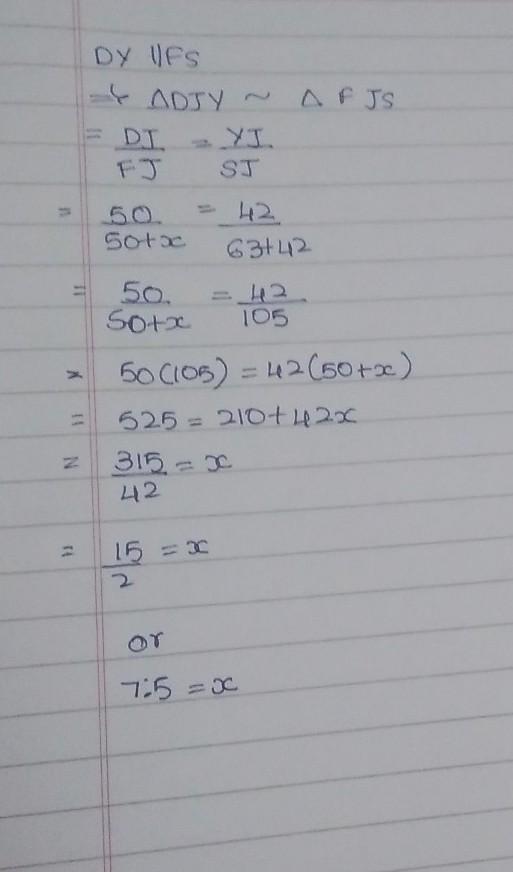 DY ||FS
=> ΔDJY ~ Δ FJS
= DJ/FJ = YJ/SJ
= 50/50+x = 42/63+42
= 50/50+x = 42/105
= 50(105) = 42(50+x)
= 525 = 210+42x
= 315/42 = x
= 15/2 = x
or
7:5 = x